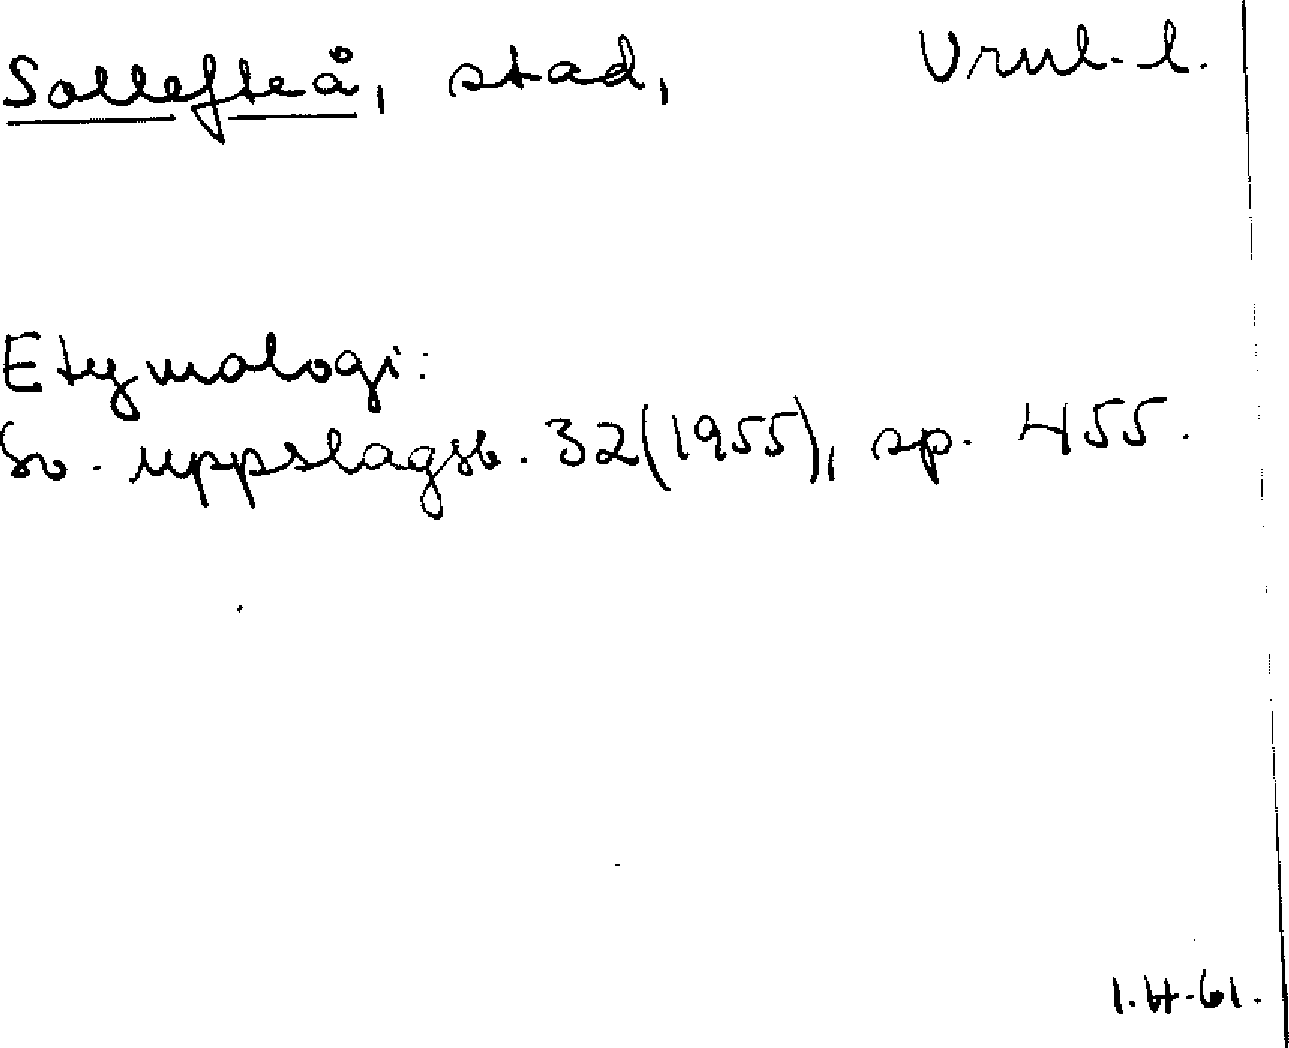 Sollefteå, stad, Vrnl. l.
Etymologi:
Sv. uppslagsb. 32(1955), sp. 455.
I.H-61.